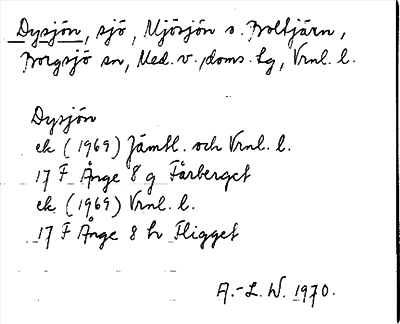 Dysjön, sjö, Mjösjön s. Boltjärn,
Borgsjö sn, Med. v. doms. lg, Vrnl. l.
Dysjön
ek (1969) Jämtl. och Vrnl. l.
17 F Ånge 8 g Fårberget
ek (1969) Vrnl. l.
17 F Ånge 8 h Fligget
A.-L. W. 1970.